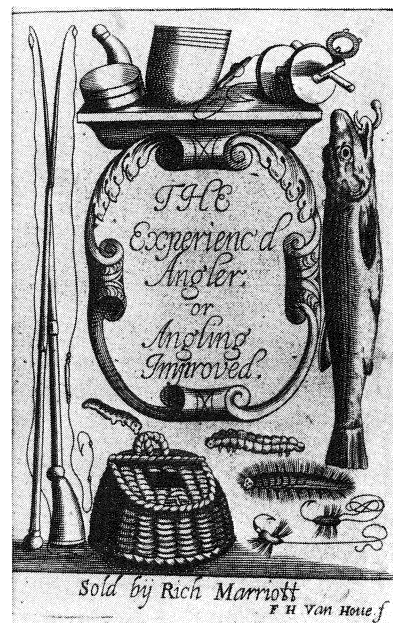 THE
Experienc'd
Angler.
or
Angling
Improved.
Sold by Rich Marriott
F H Van Houe. f